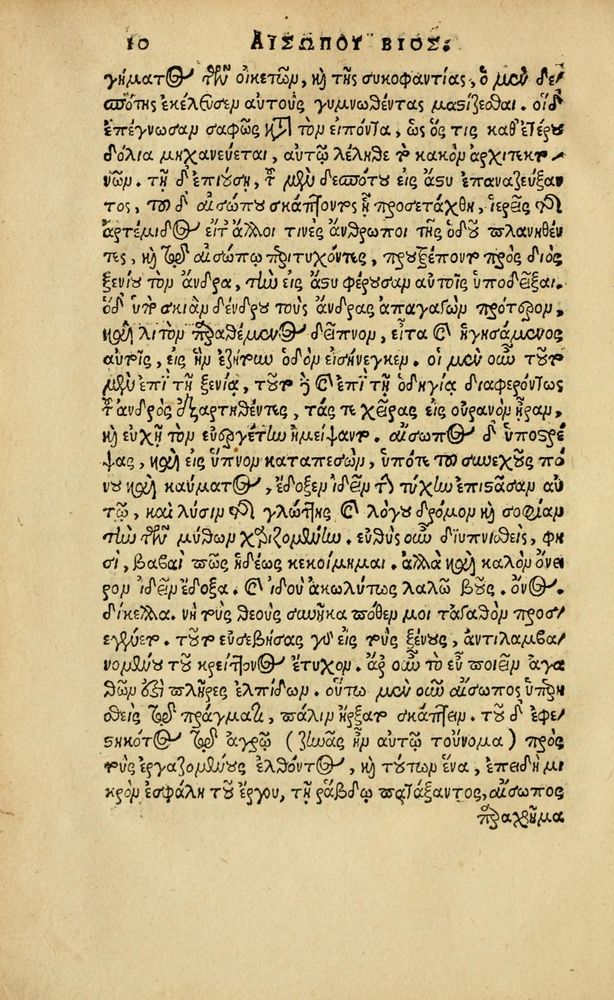 10 ΑΙΣΩΠΟΥ ΒΙΟΣ.
γήματος τῶν οἰκετῶν, καὶ τῆς συκοφαντίας, ὁ μὲν δε/
σπότης ἐκέλευσεν αὐτοὺς γυμνωθέντας μαστίζεσθαι. οἱ δ᾽
ἐπέγνωσαν σαφῶς κατὰ τὸν εἰπόντα, ὡς ὅς τις καθ᾽ ἑτέρου
δόλια μηχανεύεται, αὑτῷ λέληθε τὸ κακὸν ἀρχιτεκτ/
νῶν. τῇ δ᾽ ἐπιούσῃ, τοῦ μὲν δεσπότου εἰς ἄστυ ἐπαναζεύξαν
τος, τοῦ δ᾽ αἰσώπου σκάπτοντος ᾗ προσετάχθη, ἱερεῖς τῆς
ἀρτέμιδος εἴτ᾽ ἄλλοι τινὲς ἄνθρωποι τῆς ὁδοῦ πλανηθέν
τες, καὶ τῷ αἰσώπῳ περιτυχόντες, προὔτρεπον πρὸς διὸς
ξενίου τὸν ἄνδρα, τὴν εἰς ἄστυ φέρουσαν αὐτοῖς ὑποδεῖξαι.
ὁ δ᾽ ὑπὸ σκιὰν δένδρου τοὺς ἄνδρας ἀπαγαγὼν πρότερον,
καὶ λιτὸν παραθέμενος δεῖπνον, εἶτα καὶ ἡγησάμενος
αὐτοῖς, εἰς ἣν ἐζήτουν ὁδὸν εἰσήνεγκεν. οἱ μὲν οὖν τοῦτο
μὲν ἐπὶ τῇ ξενίᾳ, τοῦτο δὲ καὶ ἐπὶ τῇ ὁδηγίᾳ διαφερόντως
τοῦ ἀνδρὸς ἐξαρτηθέντες, τάς τε χεῖρας εἰς οὐρανὸν ἦραν,
καὶ εὐχῇ τὸν εὐεργέτην ἠμείψαντο. αἴσωπος δ᾽ ὑποστρέ
ψας, καὶ εἰς ὕπνον καταπεσὼν, ὑπό τε τοῦ συνεχοῦς πό
νου καὶ καύματος, ἔδοξεν ἰδεῖν τὴν τύχην ἐπιστᾶσαν αὐ
τῷ, καὶ λύσιν τῆς γλώττης καὶ λόγου δρόμον καὶ σοφίαν
τὴν τῶν μύθων χαριζομένην. εὐθὺς οὖν διϋπνισθεὶς, φη
σὶ, βαβαὶ πῶς ἡδέως κεκοίμημαι. ἀλλὰ καὶ καλὸν ὄνει
ρον ἰδεῖν ἔδοξα. καὶ ἰδοὺ ἀκωλύτως λαλῶ βοῦς. ὄνος.
δίκελλα. νὴ τοὺς θεοὺς συνῆκα πόθεν μοι τἀγαθὸν προσ/
εγένετο. τοῦτο εὐσεβήσας γὰρ εἰς τοὺς ξένους, ἀντιλαμβα/
νομένου τοῦ κρείττονος ἔτυχον. ἆρ᾽ οὖν τὸ εὖ ποιεῖν ἀγα
θῶν ἐστι πλῆρες ἐλπίδων. οὕτω μὲν οὖν αἴσωπος ὑπερη
σθεὶς τῷ πράγματι, πάλιν ἤρξατο σκάπτειν. τοῦ δ᾽ ἐφε/
στηκότος τῷ ἀγρῷ (ζηνᾶς ἦν αὐτῷ τοὔνομα) πρὸς
τοὺς ἐργαζομένους ἐλθόντος, καὶ τούτων ἕνα, ἐπειδὴ μι
κρὸν ἐσφάλη τοῦ ἔργου, τῇ ῥάβδῳ πατάξαντος, αἴσωπος
παραχρῆμα